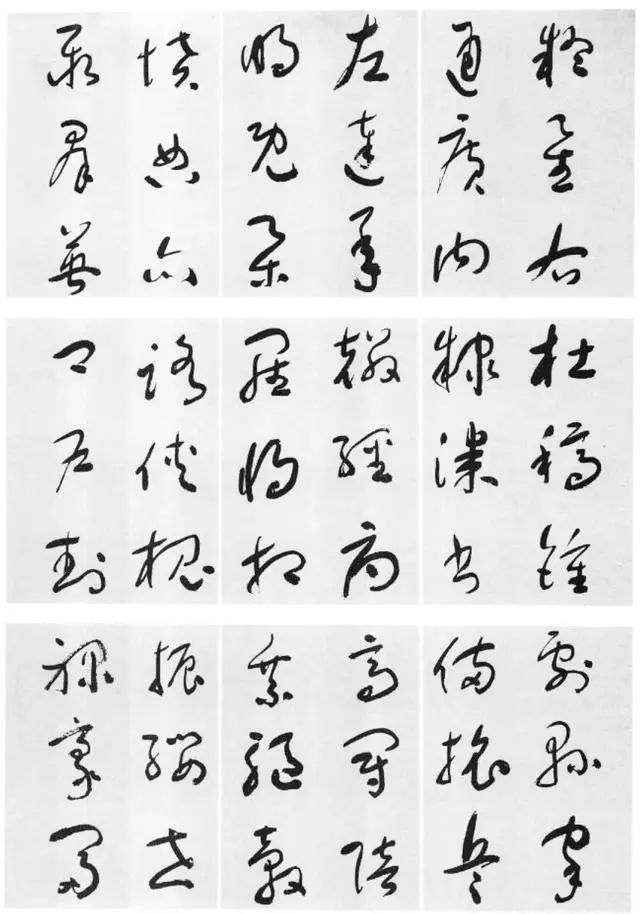 疑星右
通廣內
左達承
明既集
墳典亦
聚群英
杜稿鍾
隸漆書
經府
羅將相
路俠槐
卿戶封
縣家
兵
高冠陪
輦驅轂
振纓世
祿豪富